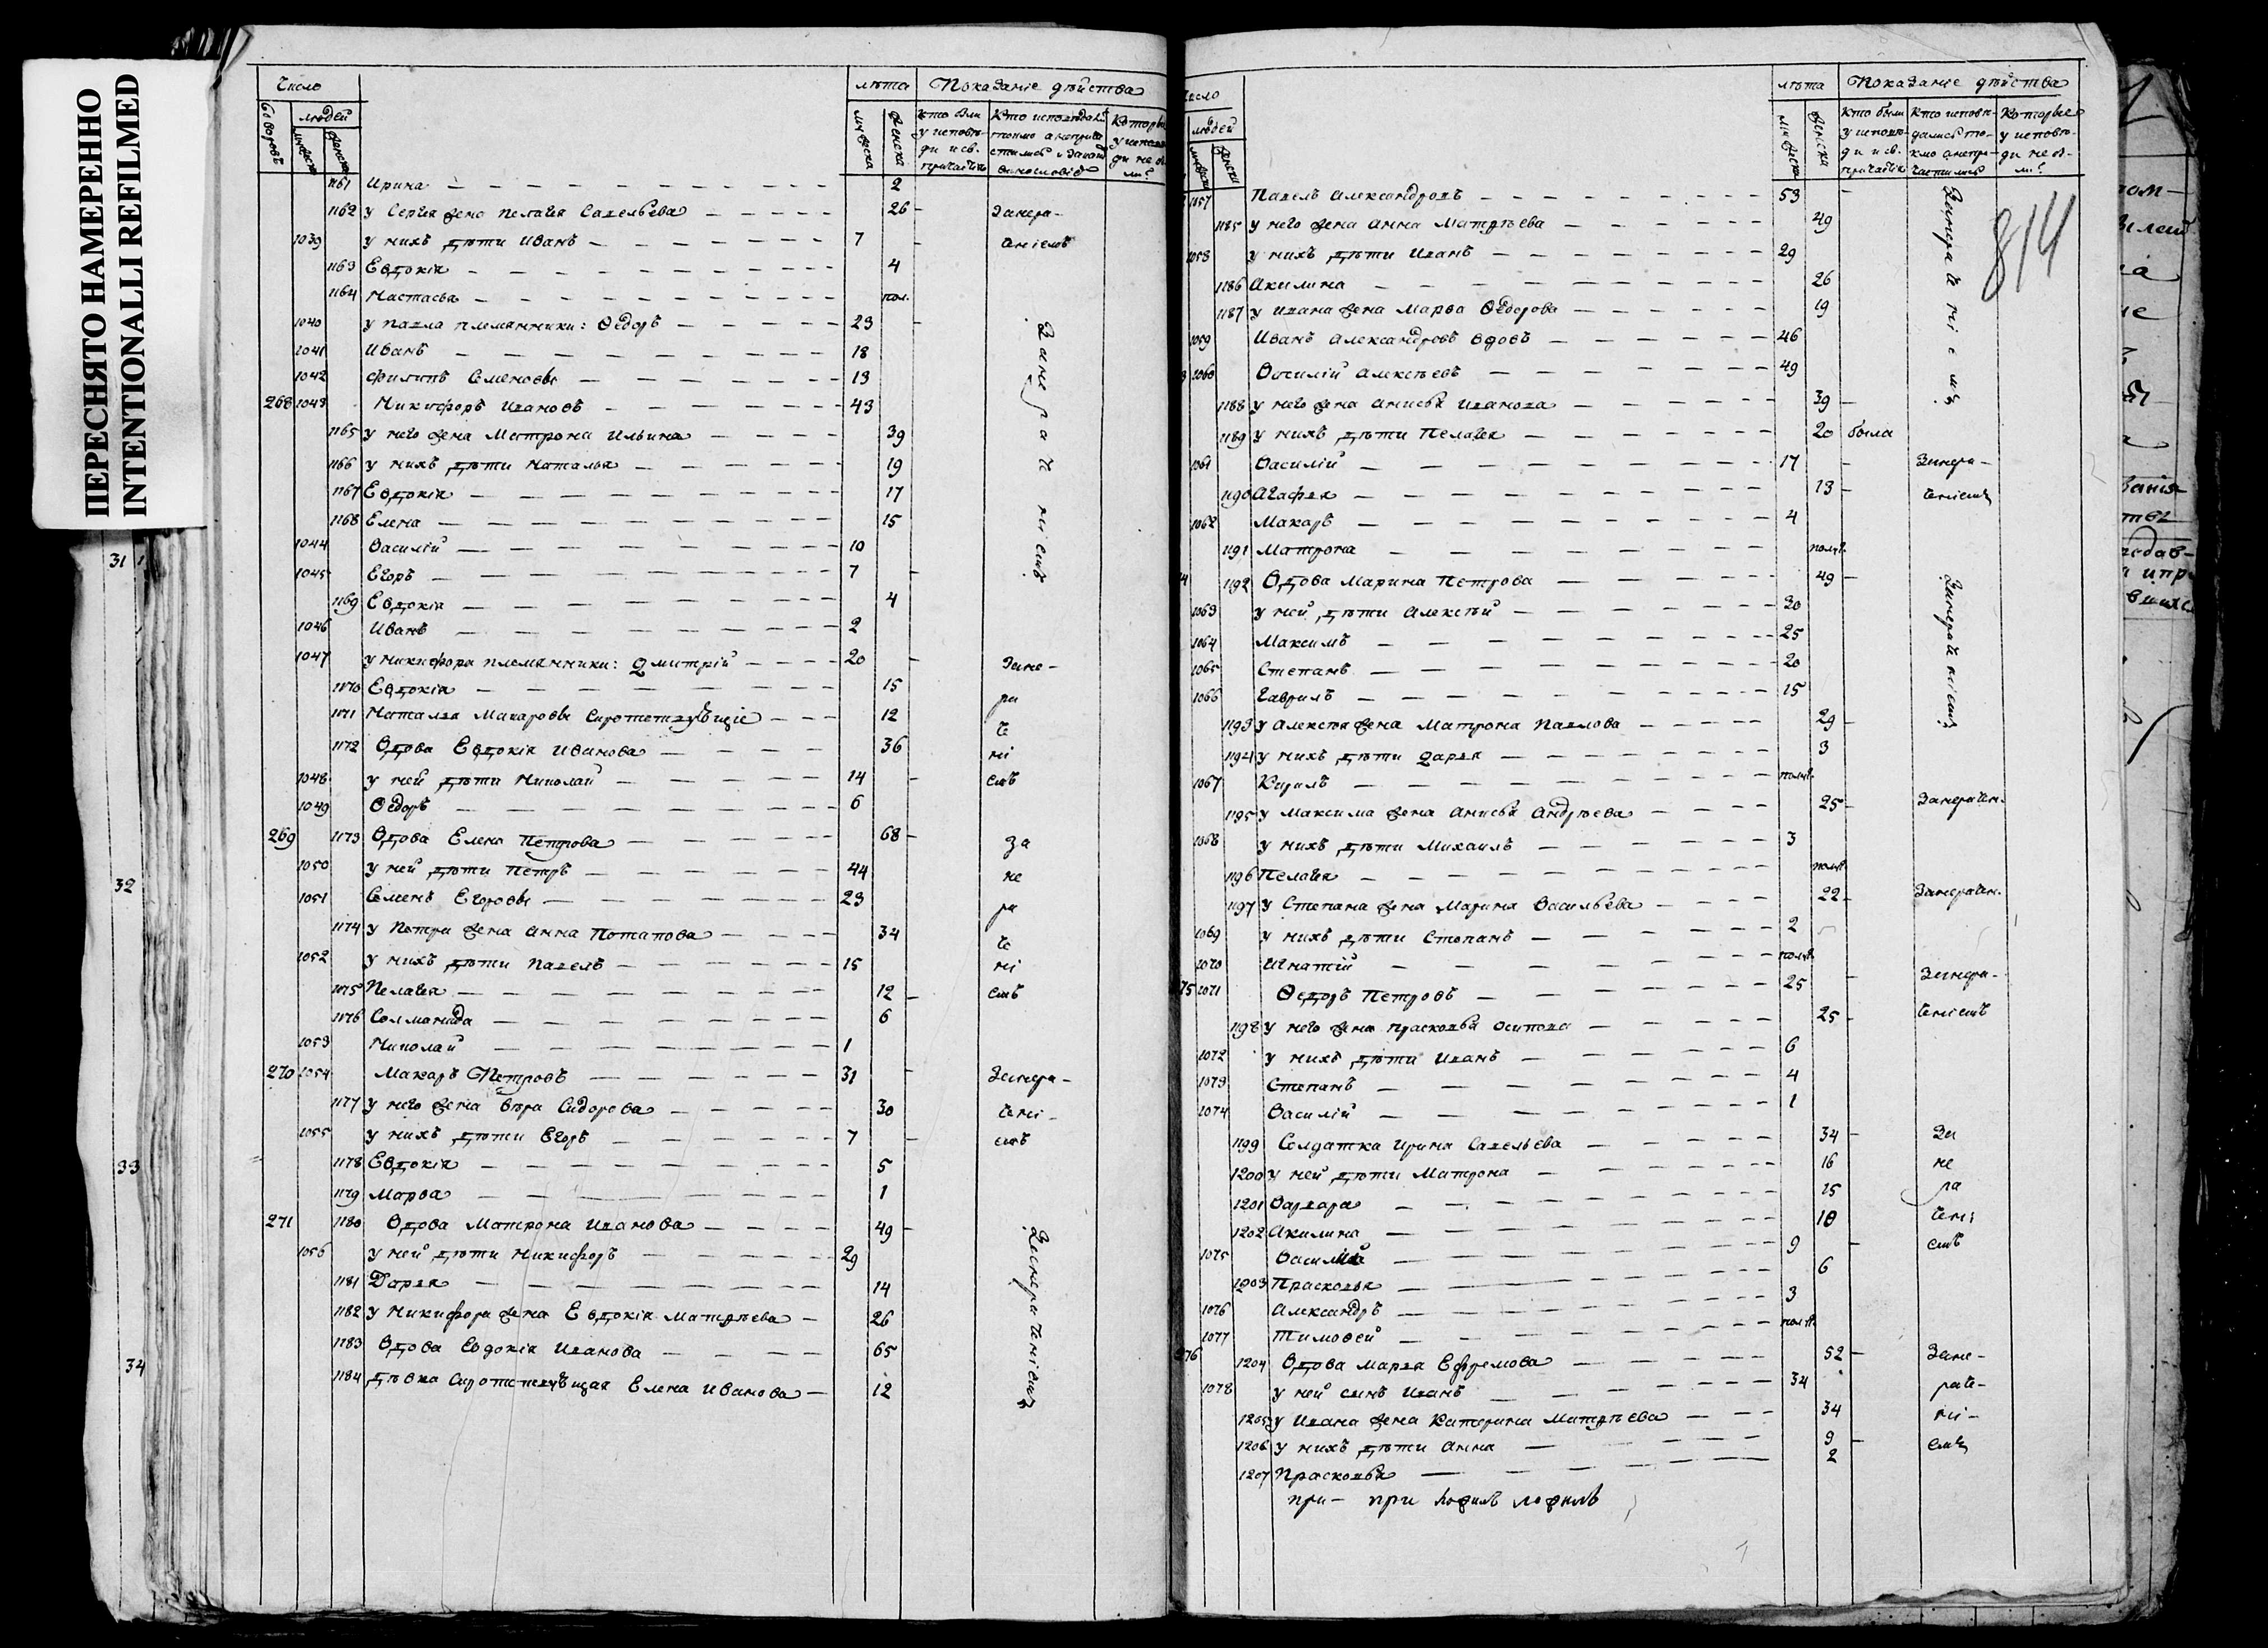 ПЕРЕСНЯТО НАМЕРЕННО
INTENTIONALLI REFILMED
31
32
33
34
Число лѣта Показаніе дѣйства
дворовъ людей мужеска женска
1161 Ирина 2
1162 у Сергѣя жена Пелагея Савельева 26 Занера-
1039 у нихъ дѣти Иванъ 7 ченіемъ
1163 Евдокія 4
1164 Настасья пол.
1040 у Павла племянники: Ѳедоръ 23
1041 Иванъ 18
1042 Филипъ Семеновы 13
Занераченіемъ
268 1043 Никифоръ Ивановъ 43
1165 у него жена Матрона Ильина 39
1166 у нихъ дѣти Наталья 19
1167 Евдокія 17
1168 Елена 15
1044 Василій 10
1045 Егоръ 7
1169 Евдокія 4
1046 Иванъ 2
1047 у Никифора племянники: Дмитрій 20 Зане-
1170 Евдокія 15 ра
1171 Наталья Макаровы 12 че
1172 Вдова Евдокія Иванова 36 ні
1048 у ней дѣти Николай 14 емъ
1049 Ѳедоръ 6
269 1173 Вдова Елена Петрова 68 За
1050 у ней дѣти Петръ 44 не
1051 Семенъ Егоровы 23 ра
1174 у Петра жена Анна Потапова 34 че
1052 у нихъ дѣти Павелъ 15 ні
1175 Пелагея 12 емъ
1176 Соломанида 6
1053 Николай 1
270 1054 Макаръ Петровъ 31 Занера-
1177 у него жена Вѣра Сидорова 30 чені-
1055 у нихъ дѣти Егоръ 7 емъ
1178 Евдокія 5
1179 Марѳа 1
271 1180 Вдова Матрона Иванова 49
1056 у ней дѣти Никифоръ 29
1181 Дарья 14
1182 у Никифора жена Евдокія Матвѣева 26
1183 Вдова Евдокія Иванова 65
1184 дѣвка Елена Иванова 12
Занераченіемъ
Число лѣта Показаніе дѣйства
людей мужеска женска
Кто были у исповѣди и св. причастія
Кто исповѣдались токмо а непричастились
Которые у исповѣди не были
814
1057 Павелъ Александровъ 53
1185 у него жена Анна Матвѣева 49
1058 у нихъ дѣти Иванъ 29
1186 Акилина 26
1187 у Ивана жена Марѳа Ѳедорова 19
1059 Иванъ Александровъ вдовъ 46
1060 Василій Алексѣевъ 49
1188 у него жена Анисья Иванова 39
Занераченіемъ
1189 у нихъ дѣти Пелагея 20 была
1061 Василій 17 Занера-
1190 Агафья 13 ченіемъ
1062 Макаръ 4
1191 Матрона полг.
1192 Вдова Марина Петрова 49
1063 у ней дѣти Алексѣй 30
1064 Максимъ 25
1065 Степанъ 20
1066 Гаврилъ 15
1193 у Алексѣя жена Матрона Павлова 29
Занераченіемъ
1194 у нихъ дѣти Дарья 3
1067 Кирилъ полг.
1195 у Максима жена Анисья Андрѣева 25 Занерачен.
1068 у нихъ дѣти Михаилъ 3
1196 Пелагея полг.
1197 у Степана жена Марина Васильева 22 Занерачен.
1069 у нихъ дѣти Степанъ 2
1070 Игнатій полг.
75 1071 Ѳедоръ Петровъ 25 Занера-
1198 у него жена Прасковья Осипова 25 ченіемъ
1072 у нихъ дѣти Иванъ 6
1073 Степанъ 4
1074 Василій 1
1199 Солдатка Ирина Савельева 34 За
1200 у ней дѣти Матрона 16 не
1201 Варвара 15 ра
1202 Акилина 10 чені
1075 Василій 9 емъ
1203 Прасковья 6
1076 Александръ 3
1077 Тимоѳей полг.
276 1204 Вдова Марья Ефремова 52 Зане-
1078 у ней сынъ Иванъ 34 раче-
1205 у Ивана жена Катерина Матвѣева 34 ні-
1206 у нихъ дѣти Анна 9 емъ
1207 Прасковья 2
при- при